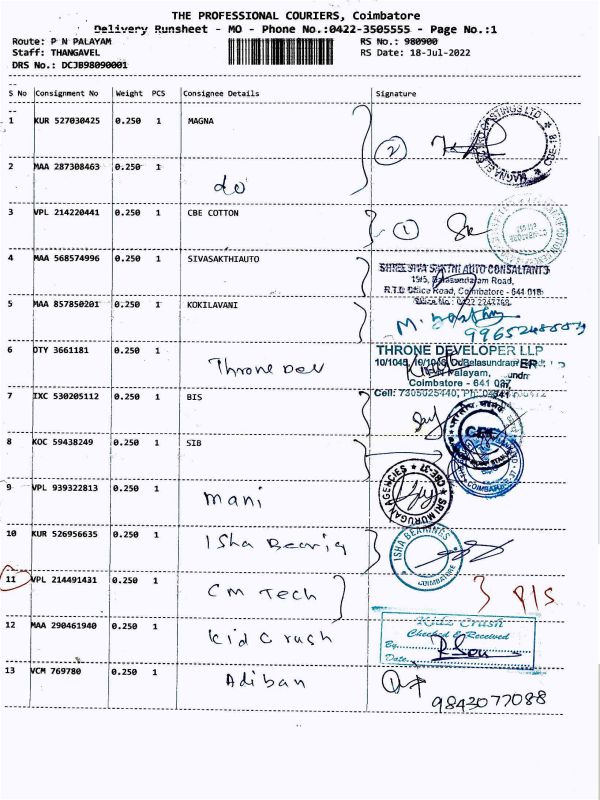 THE PROFESSIONAL COURIERS, Coimbatore
Delivery Runsheet - MO - Phone No.:0422-3505555 - Page No.:1
Route: P N PALAYAM RS No.: 980900
Staff: THANGAVEL RS Date: 18-Jul-2022
DRS No.: DCJB98090001
S No Consignment No Weight PCS Consignee Details Signature
1 KUR 527030425 0.250 1 MAGNA 2
2 MAA 287308463 0.250 1 do
3 VPL 214220441 0.250 1 CBE COTTON 1
4 MAA 568574996 0.250 1 SIVASAKTHIAUTO
SHREE SIVA SAKTHI AUTO CONSULTANTS
19/5, Balasundaram Road,
R.T.O Office Road, Coimbatore - 641 018
5 MAA 857850201 0.250 1 KOKILAVANI
6 DTY 3661181 0.250 1 Throne Dev
THRONE DEVELOPER LLP
Palayam,
Coimbatore - 641 037
Cell: 7305025440, Ph:
7 IXC 530205112 0.250 1 BIS
8 KOC 59438249 0.250 1 SIB
9 VPL 939322813 0.250 1 mani
SRI MURUGAN AGENCIES ★ CBE-37 ★
10 KUR 526956635 0.250 1 Isha Bearig
ISHA BEARINGS
COIMBATORE
11 VPL 214491431 0.250 1 CM Tech
12 MAA 290461940 0.250 1 Kid Crush
Kidz Crush
Checked & Received
By
Date
13 VCM 769780 0.250 1 Adiban
9843077088